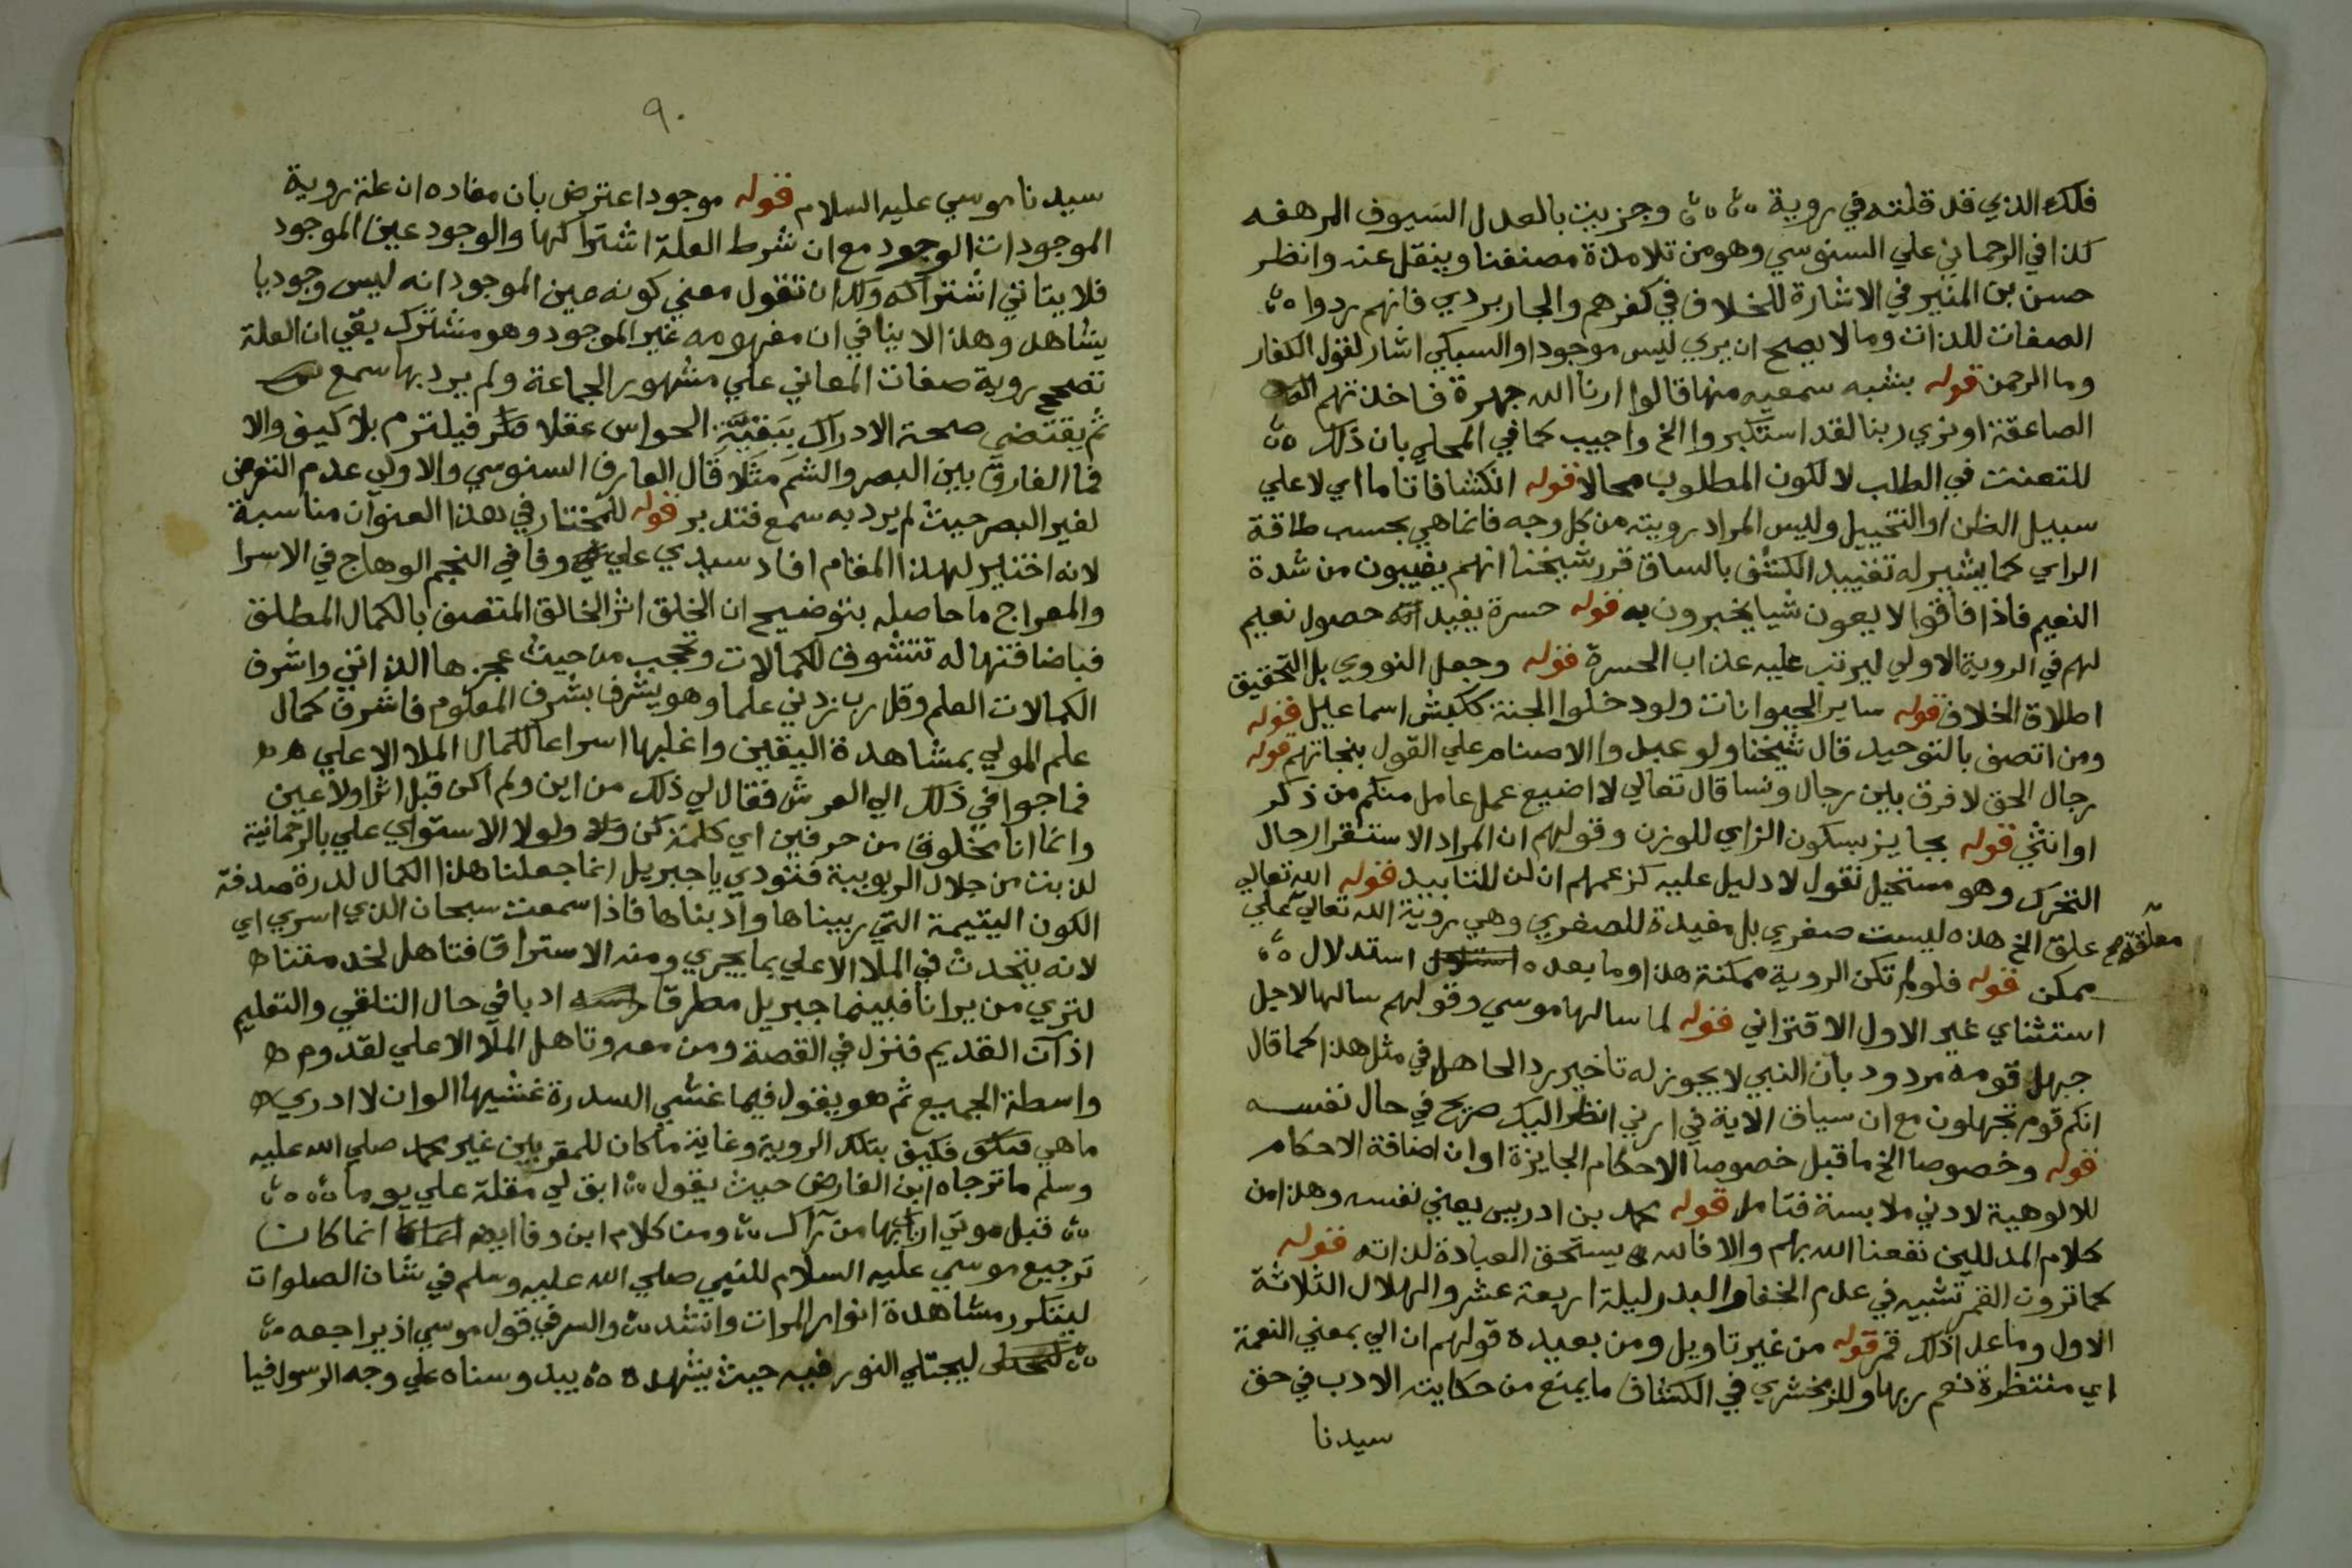 فلك الذي قد قلته في روية ٥ وجزيت بالعدل السيوف المرهفه
كذا في الرحماني علي السنوسي وهو من تلامذة مصنفنا وينقل عنه وانظر
حسن بن المنير في الاشارة للخلاف في كفرهم والجاربردي فانهم ردوا
الصفات للذات وما لا يصح ان يري ليس موجودا والسبكي اشار لقول الكفار
وما الرحمن قوله بشبه سمعيه منها قالوا ارنا الله جهرة فاخذتهم
الصاعقة او نري ربنا لقد استكبروا الخ واجيب كما في المحلي بان ذلك
للتعنت في الطلب لا لكون المطلوب محالا قوله انكشافا تاما اي لا علي
سبيل الظن او التخييل وليس المراد رويته من كل وجه فانما هي بحسب طاقة
الراي كما يشير له تقييد الكشف بالساق قرر شيخنا انهم يغيبون من شدة
النعيم فاذا فاقوا لا يعون شيا يخبرون به قوله حسرة يفيد انه حصول نعيم
لهم في الروية الاولي ليرتب عليه عذاب الحسرة قوله وجعل النووي بل التحقيق
اطلاق الخلاف قوله ساير الحيوانات ولو دخلوا الجنة ككبش اسماعيل قوله
ومن اتصف بالتوحيد قال شيخنا ولو عبدوا الاصنام علي القول بنجاتهم قوله
رجال الحق لا فرق بين رجال ونسا قال تعالي لا اضيع عمل عامل منكم من ذكر
او انثي قوله بجايز بسكون الزاي للوزن وقولهم ان المراد الاستقرار حال
التحرك وهو مستحيل نقول لا دليل عليه كزعمهم ان لن للتابيد قوله الله تعالي
علق الخ هذه ليست صغري بل مفيدة للصغري وهي روية الله تعالي علي
معلقة صح
ممكن قوله فلو لم تكن الروية ممكنة هذا وما بعده استدلال
استثناي غير الاول الاقتراني قوله لما سالها موسي وقولهم سالها لاجل
جهل قومه مردود بان النبي لا يجوز له تاخير رد الجاهل في مثل هذا كما قال
انكم قوم تجهلون مع ان سياق الاية في ارني انظر اليك صريح في حال نفسه
قوله وخصوصا الخ ما قبل خصوصا الاحكام الجايزة او ان اضافة الاحكام
للالوهية لادني ملابسة فتامل قوله محمد بن ادريس يعني نفسه وهذا من
كلام المدللين نفعنا الله بهم والا فالله يستحق العبادة لذاته قوله
كما ترون القمر تشبيه في عدم الخفا والبدر ليلة اربعة عشر والهلال الثلاثة
الاول وما عدا ذلك قمر قوله من غير تاويل ومن بعيده قولهم ان الي بمعني النعمة
اي منتظرة نعم ربها وللزمخشري في الكشاف ما يمنع من حكايته الادب في حق
سيدنا
٩٠
سيدنا موسي عليه السلام قوله موجود اعترض بان مفاده ان علة روية
الموجودات الوجود مع ان شرط العلة اشتراكها والوجود عين الموجود
فلا يتاتي اشتراكه ولك ان تقول معني كونه عين الموجود انه ليس وجوديا
يشاهد وهذا لا ينافي ان مفهومه غير الموجود وهو مشترك بقي ان العلة
تصحح روية صفات المعاني علي مشهور الجماعة ولم يرد بها سمع
ثم يقتضي صحة الادراك ببقية الحواس عقلا فيلتزم بلا كيف والا
فما الفارق بين البصر والشم مثلا قال العارف السنوسي والاولي عدم التعرض
لغير البصر حيث لم يرد به سمع فتدبر قوله للمختار في هذا العنوان مناسبة
لانه اختاير لهذا المقام افاد سيدي علي وفا في النجم الوهاج في الاسرا
والمعراج ما حاصله بتوضيح ان الخلق اثر الخالق المتصف بالكمال المطلق
فباضافتها له تتشوف للكمالات وتحجب من حيث عجزها الذاتي واشرف
الكمالات العلم وقل رب زدني علما وهو يشرف بشرف المعلوم فاشرف كمال
علم المولي بمشاهدة اليقين واغلبها اسراعا لكمال الملا الاعلي
فماجوا في ذلك الي العرش فقال لي ذلك من اين ولم اكن قبل اثرا ولا عين
وانما انا مخلوق من حرفين اي كلمة كن ولولا الاستواي علي بالرحمانية
لذبت من جلال الربوبية فنودي يا جبريل انما جعلنا هذا الكمال لدرة صدفة
الكون اليتيمة التي ربيناها وادبناها فاذا سمعت سبحان الذي اسري اي
لانه يتحدث في الملا الاعلي بما يجري ومنه الاستراق فتاهل لخدمتنا
لتري من يرانا فبينما جبريل مطرقا راسه ادبا في حال التلقي والتعليم
اذ آن القديم فنزل في القصة ومن معه وتاهل الملا الاعلي لقدوم
واسطة الجميع ثم هو يقول فيما غشي السدرة غشيها الوان لا ادري
ما هي فكيف بتلك الروية وغاية ما كان للمقربين غير محمد صلي الله عليه
وسلم ما ترجاه ابن الفارض حيث يقول ابق لي مقلة علي يوما
قبل موتي اري بها من رآك ومن كلام ابن وفا ايضا انما كان
ترجيع موسي عليه السلام للنبي صلي الله عليه وسلم في شان الصلوات
ليتكرر مشاهدة انوار المرات وانشد والسر في قول موسي اذ يراجعه
ليجتلي النور فيه حيث يشهده يبدو سناه علي وجه الرسول فيا